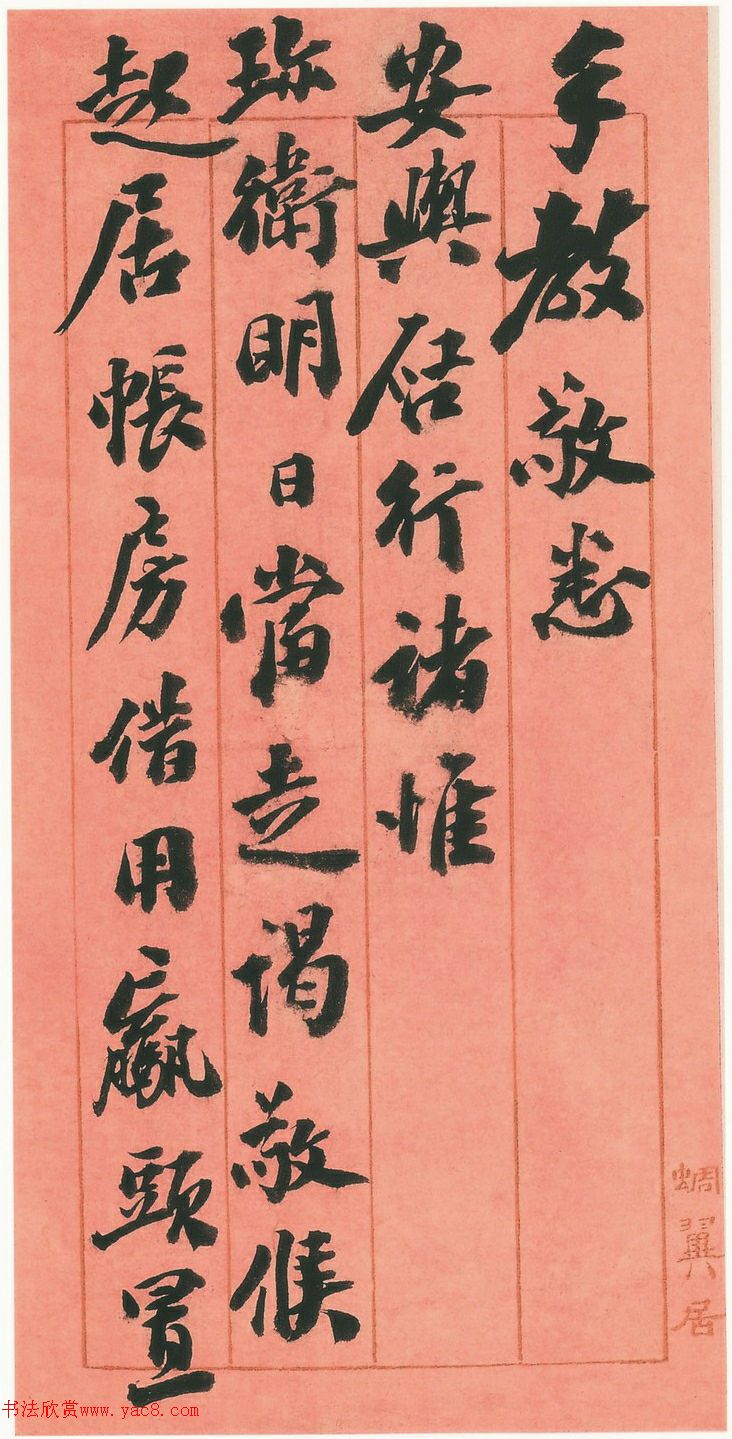 手教敬悉
安輿启行諸惟
珍衛明日當走謁敬候
起居帳房借用驘頭置
蜩翼居
书法欣赏www.yac8.com